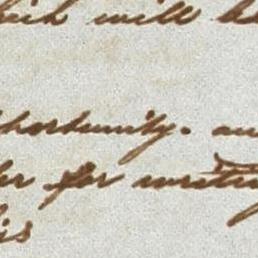 hich will be
portunity. an
er for writin
his